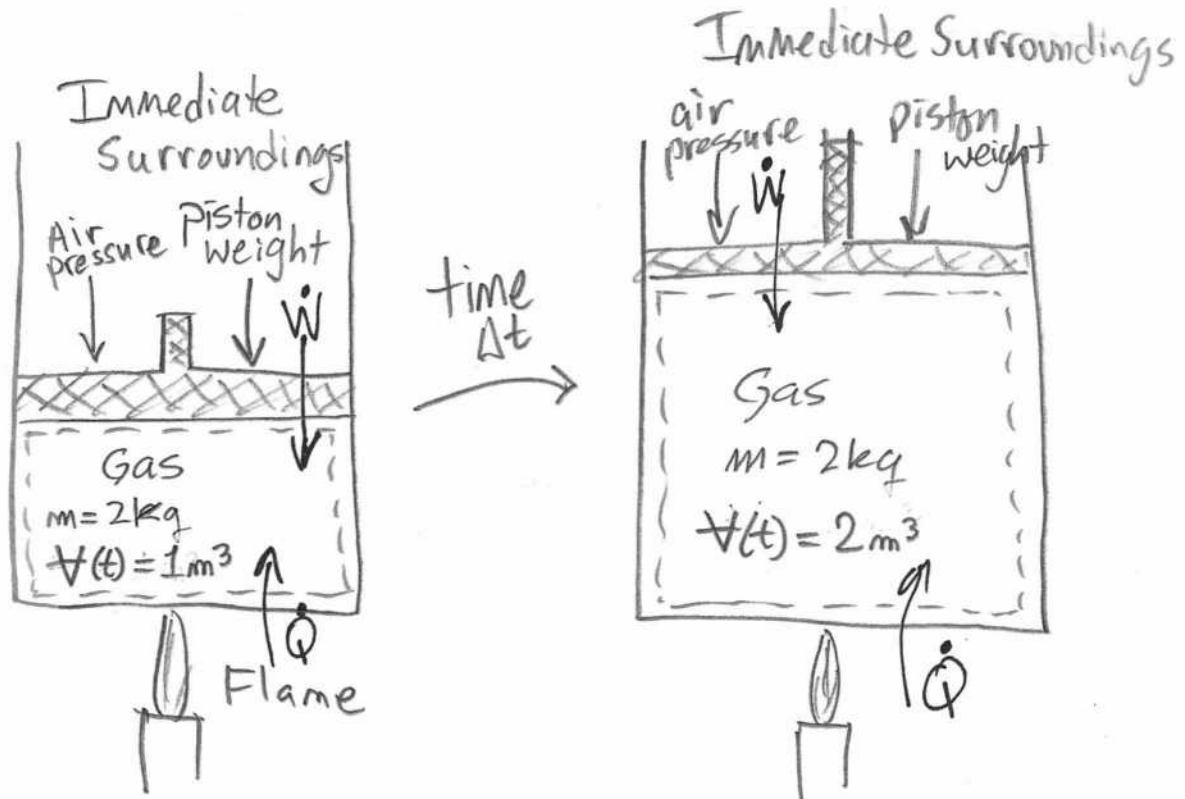 Immediate
Surroundings
Air
pressure
Piston
weight
Ẇ
Gas
m = 2kg
V(t) = 1m³
Q̇
Flame
time
Δt
Immediate Surroundings
air
pressure
Ẇ
piston
weight
Gas
m = 2kg
V(t) = 2m³
Q̇